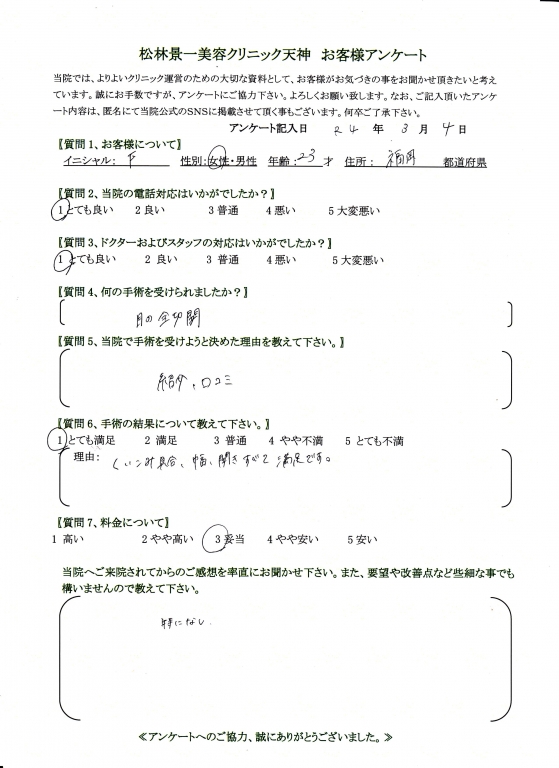 松林景一美容クリニック天神 お客様アンケート
当院では、よりよいクリニック運営のための大切な資料として、お客様がお気づきの事をお聞かせ頂きたいと考え
ています。誠にお手数ですが、アンケートにご協力下さい。よろしくお願い致します。なお、ご記入頂いたアンケ
ート内容は、匿名にて当院公式のSNSに掲載させて頂く事もございます。何卒ご了承下さい。
アンケート記入日 R4 年 3 月 4 日
【質問1、お客様について】
イニシャル: F 性別:女性・男性 年齢:23才 住所: 福岡 都道府県
【質問2、当院の電話対応はいかがでしたか?】
1とても良い 2 良い 3 普通 4 悪い 5 大変悪い
【質問3、ドクターおよびスタッフの対応はいかがでしたか?】
1とても良い 2 良い 3 普通 4 悪い 5 大変悪い
【質問4、何の手術を受けられましたか?】
目の全切開
【質問5、当院で手術を受けようと決めた理由を教えて下さい。】
紹介、口コミ
【質問6、手術の結果について教えて下さい。】
1とても満足 2 満足 3 普通 4 やや不満 5 とても不満
理由: くいこみ具合、幅、開きすべて満足です。
【質問7、料金について】
1 高い 2 やや高い 3 妥当 4 やや安い 5 安い
当院へご来院されてからのご感想を率直にお聞かせ下さい。また、要望や改善点など些細な事でも
構いませんので教えて下さい。
特になし.
≪アンケートへのご協力、誠にありがとうございました。≫